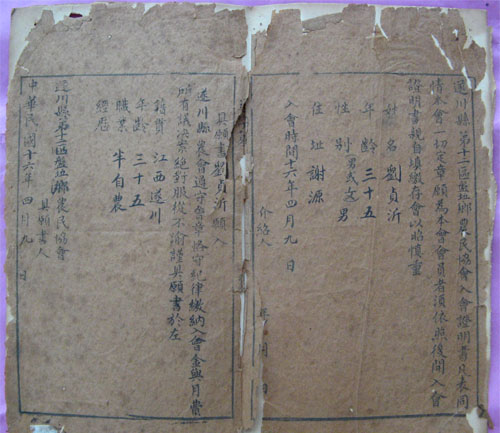 遂川縣第十二區盤坵鄉農民協會入會證明書凡表同
情本會一切定章願為本會會員者須依照後開入會
證明書親自填繳存會以昭慎重
姓名 劉貞沂
年齡 三十五
性別 男或女 男
住址 謝源
入會時間十六年四月九日
介紹人
年 月 日
具願書劉貞沂願入
遂川縣農會遵守會章執守紀律繳納入會金與月費
所有議決案絕對服從不渝謹具願書於左
籍貫 江西遂川
年齡 三十五
職業 半自農
經歷
遂川縣第十二區盤坵鄉農民協會
具願書人
中華民國十六年四月九日